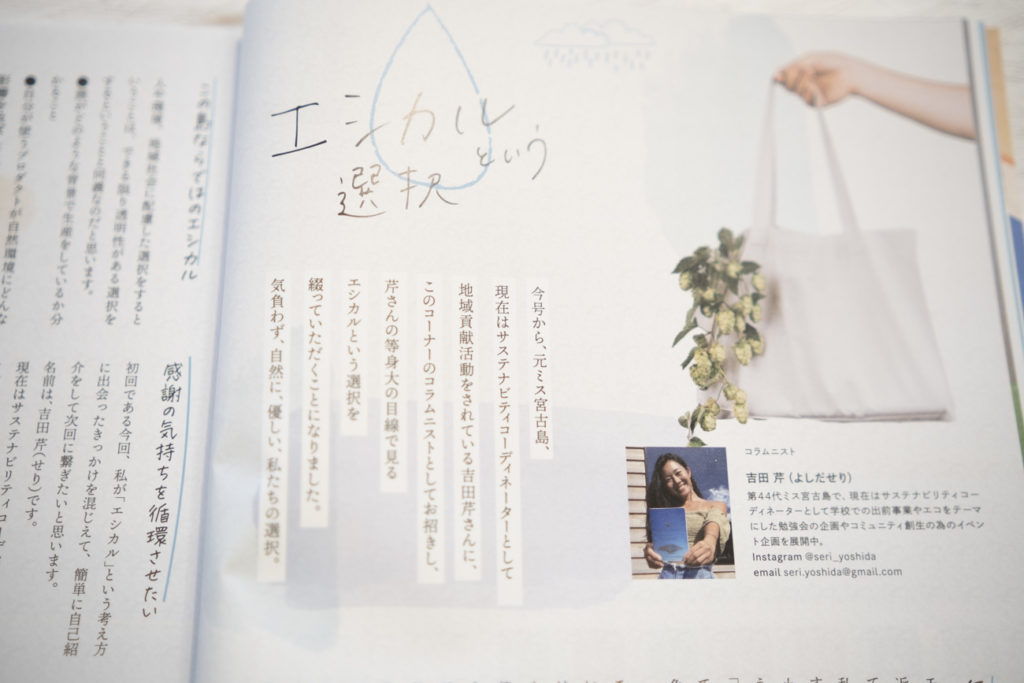 エシカル
という
選択
今号から、元ミス宮古島、
現在はサステナビリティコーディネーターとして
地域貢献活動をされている吉田芹さんに、
このコーナーのコラムニストとしてお招きし、
芹さんの等身大の目線で見る
エシカルという選択を
綴っていただくことになりました。
気負わず、自然に、優しい、私たちの選択。
コラムニスト
吉田 芹（よしだせり）
第44代ミス宮古島で、現在はサステナビリティコー
ディネーターとして学校での出前事業やエコをテーマ
にした勉強会の企画やコミュニティ創生の為のイベン
ト企画を展開中。
Instagram @seri_yoshida
email seri.yoshida@gmail.com
この島ならではのエシカル
人や環境、地域社会に配慮した選択をすると
いうことは、できる限り透明性がある選択を
するということと同義なのだと思います。
●誰がどのような背景で生産をしているか分
かること
●自分が使うプロダクトが自然環境にどんな
感謝の気持ちを循環させたい
初回である今回、私が「エシカル」という考え方
に出会ったきっかけを混じえて、簡単に自己紹
介をして次回に繋ぎたいと思います。
名前は、吉田 芹（せり）です。
現在はサステナビリティコーデ